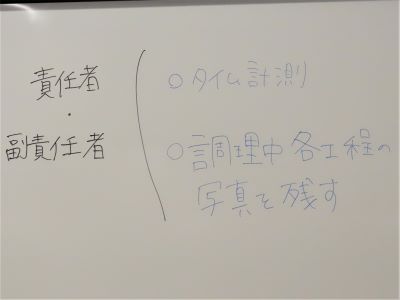 責任者
・
副責任者
○タイム計測
○調理中各工程の
写真を残す